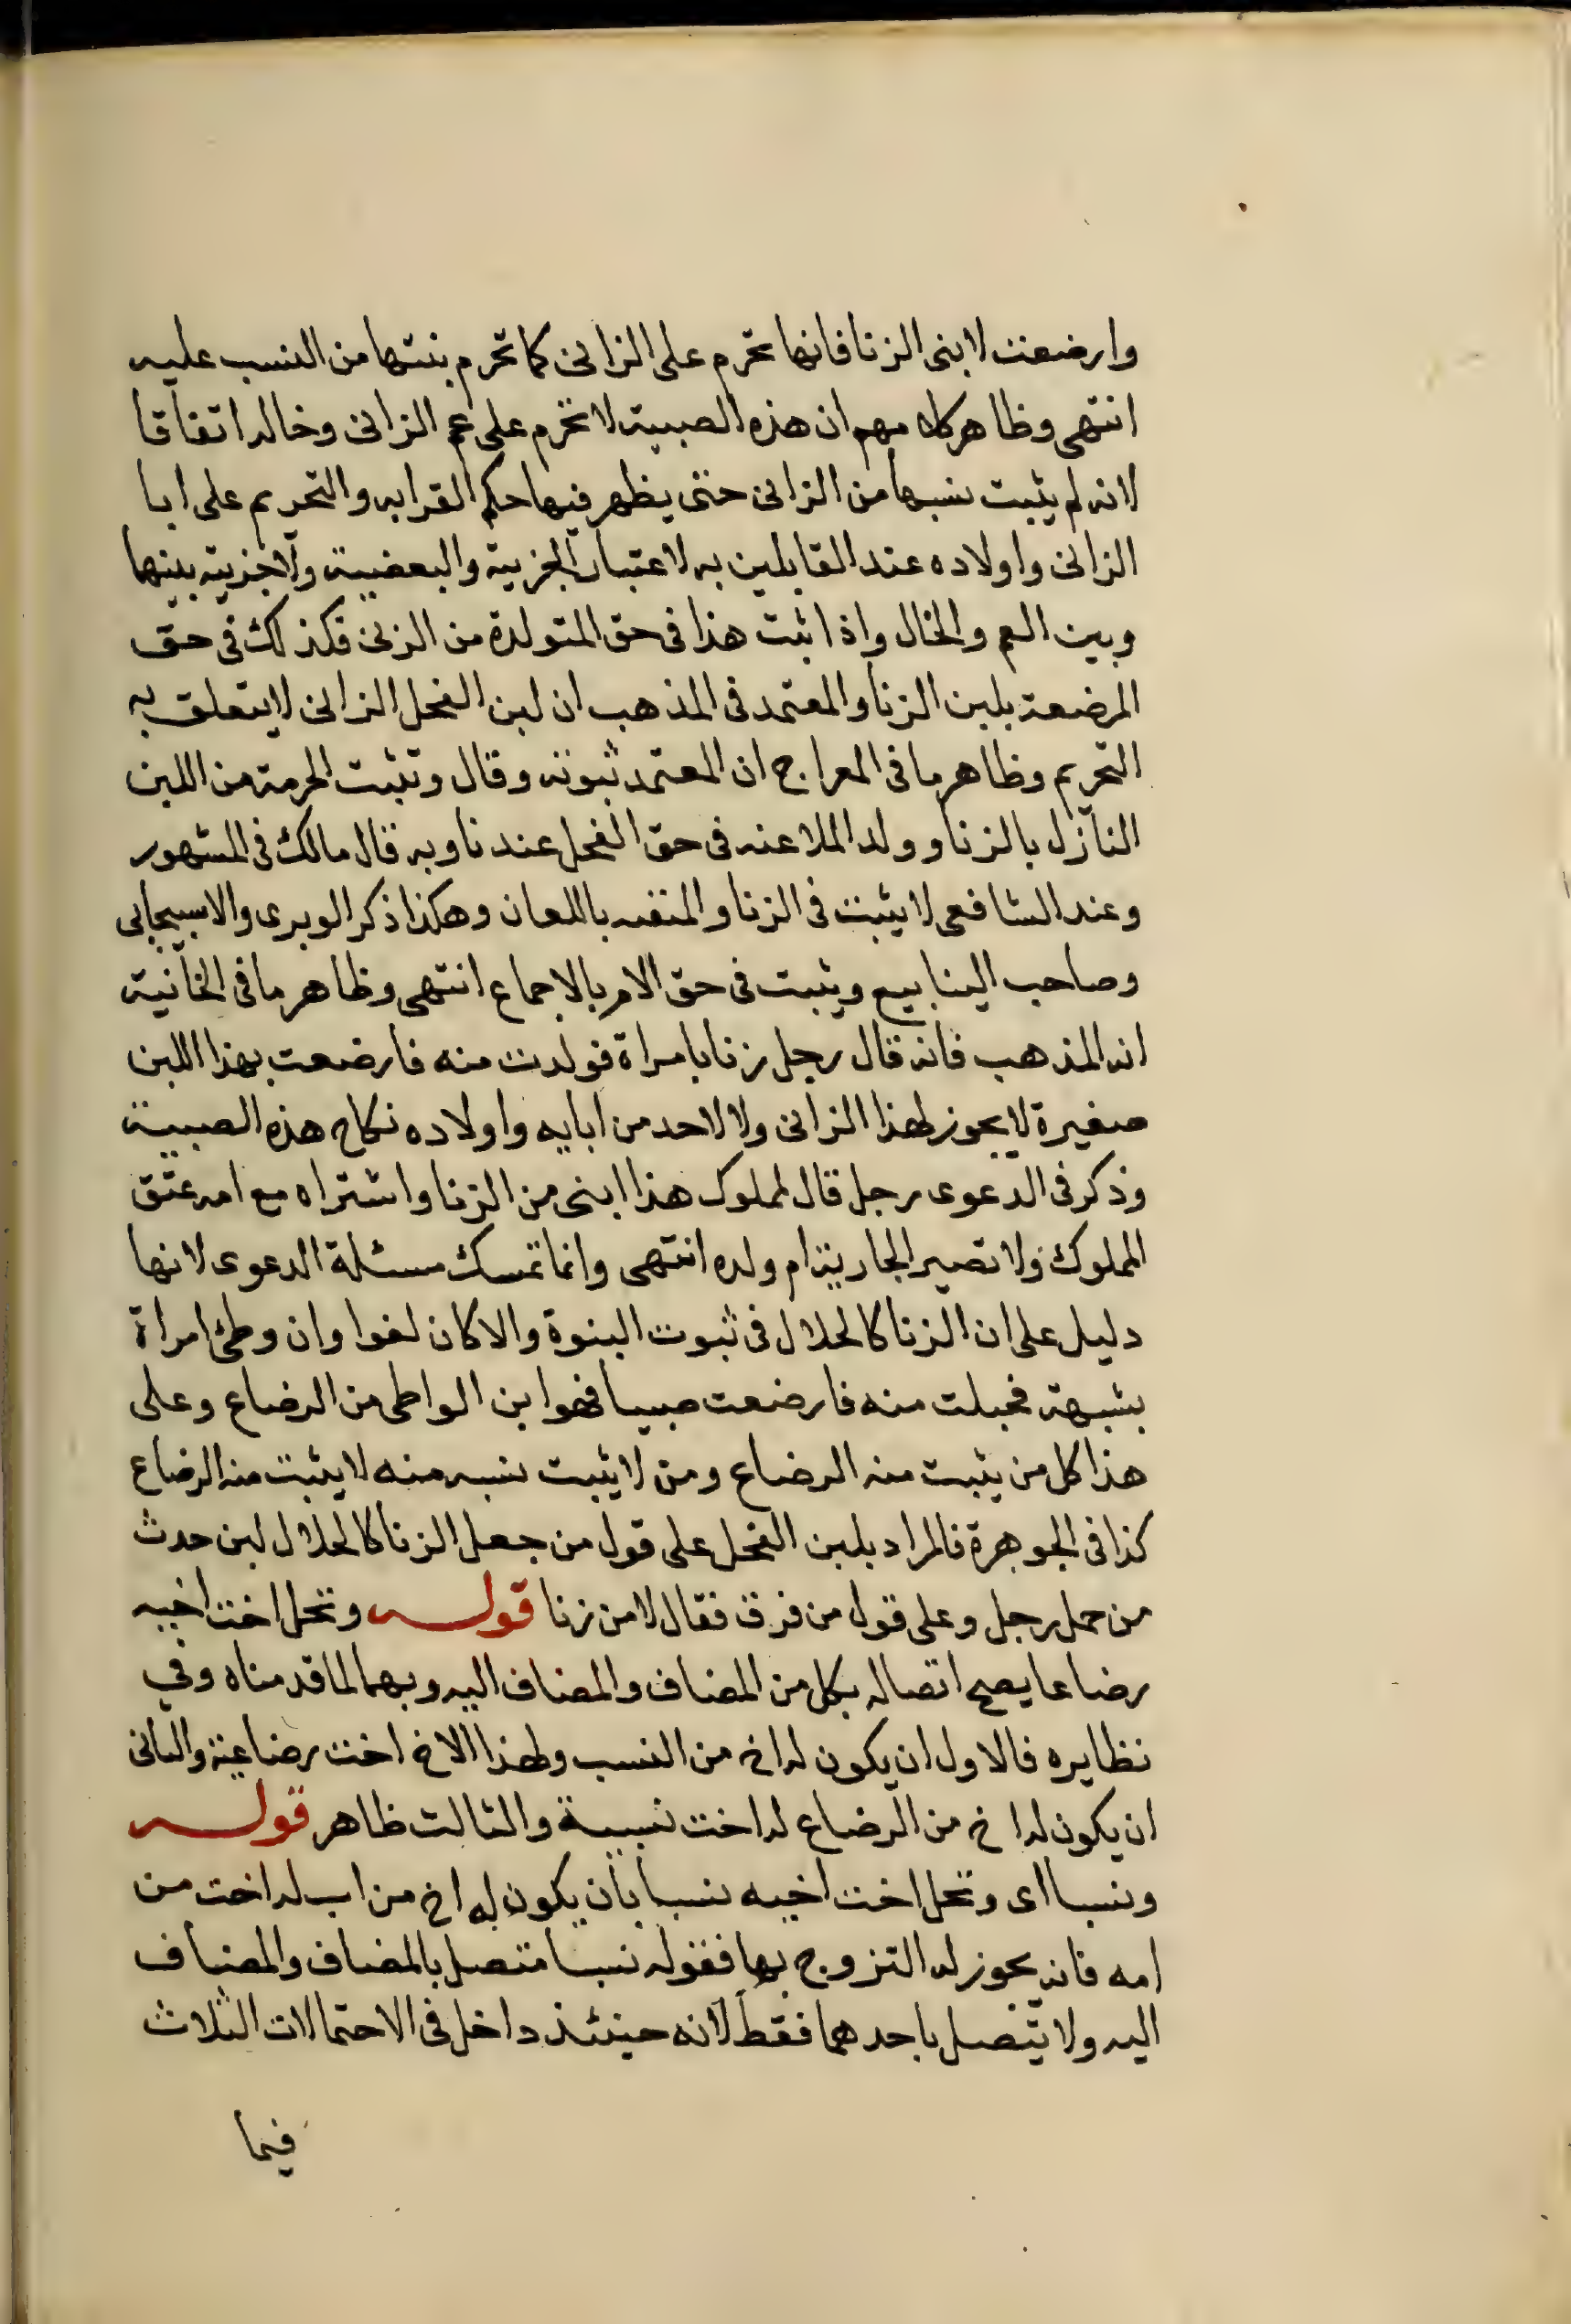 وارضعت لا بنى الزنا فانها تحرم على الزانى كما تحرم بنتها من النسب عليه
انتهى وظاهر كلامهم ان هذه الصبية لا تحرم على عم الزانى وخاله اتفاقا
لانه لم يثبت نسبها من الزانى حتى يظهر فيها حكم القرابه والتحريم على ابا
الزانى واولاده عند القايلين به لاعتبار الجزيية والبعضية ولا جزيية بينها
وبين العم والخال واذا ثبت هذا فى حق المتولدة من الزنى فكذلك فى حق
المرضعة بلبن الزنا والمعتمد فى المذهب ان لبن الفحل الزانى لا يتعلق به
التحريم وظاهر ما فى المعراج ان المعتمد ثبوته وقال وتثبت الحرمة من اللبن
النازل بالزنا وولد الملاعنه فى حق الفحل عندنا وبه قال مالك فى المشهور
وعند الشافعى لا يثبت فى الزنا والمنفى باللعان وهكذا ذكر الوبرى والاسبيجابى
وصاحب الينابيع ويثبت فى حق الام بالاجماع انتهى وظاهر ما فى الخانية
انه المذهب فانه قال رجل زنا بامراة فولدت منه فارضعت بهذا اللبن
صغيرة لا يجوز لهذا الزانى ولا لاحد من ابايه واولاده نكاح هذه الصبية
وذكر فى الدعوى رجل قال لمملوك هذا ابنى من الزنا واشتراه مع امه عتق
المملوك ولا تصير الجارية ام ولده انتهى وانما تمسك مسئلة الدعوى لانها
دليل على ان الزنا كالحلال فى ثبوت البنوة والا كان لغوا وان وطئ امراة
بشبهة فحبلت منه فارضعت صبيا فهو ابن الواطى من الرضاع وعلى
هذا كل من يثبت منه الرضاع ومن لا يثبت نسبه منه لا يثبت منه الرضاع
كذا فى الجوهرة فالمراد بلبن الفحل على قول من جعل الزنا كالحلال لبن حدث
من حمل رجل وعلى قول من فرق فقال لا من زنا قوله وتحل اخت اخيه
رضاعا يصح اتصاله بكل من المضاف والمضاف اليه وبهما لما قدمناه وفي
نظايره فالاول ان يكون له اخ من النسب ولهذا الاخ اخت رضاعية والثانى
ان يكون له اخ من الرضاع له اخت نسبية والثالث ظاهر قوله
ونسبا اى وتحل اخت اخيه نسبا بان يكون له اخ من اب له اخت من
امه فانه يجوز له التزوج بها فقوله نسبا متصل بالمضاف والمضاف
اليه ولا يتصل باحدهما فقط لانه حينئذ داخل فى الاحتمالات الثلاث
فيما